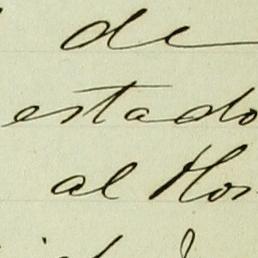 de
estado
al Hos